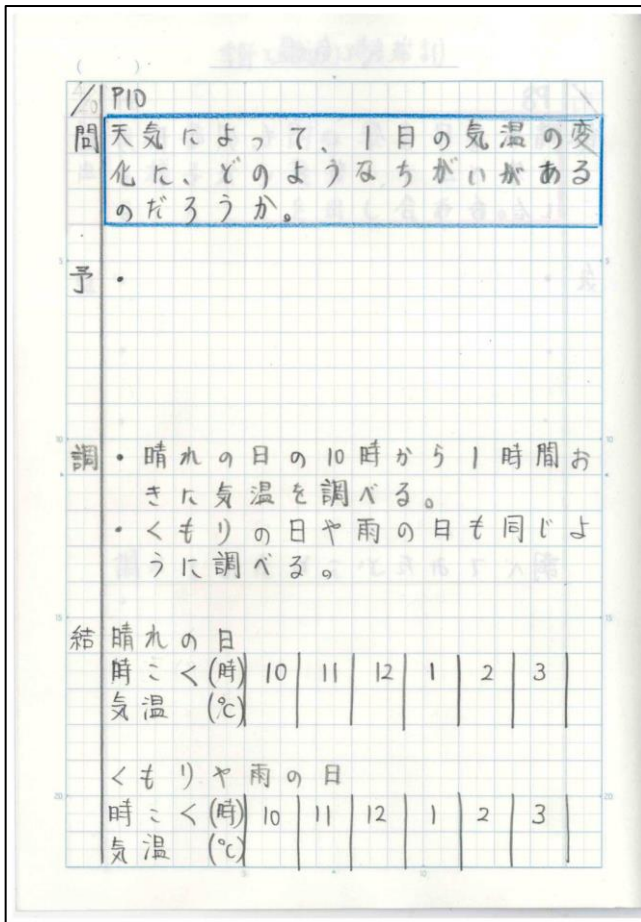 (　　)
P10
問 天気によって、1日の気温の変
化に、どのようなちがいがある
のだろうか。
予 ・
調 ・晴れの日の10時から1時間お
きに気温を調べる。
・くもりの日や雨の日も同じよ
うに調べる。
結 晴れの日
時こく(時) 10 11 12 1 2 3
気温 (℃)
くもりや雨の日
時こく(時) 10 11 12 1 2 3
気温 (℃)